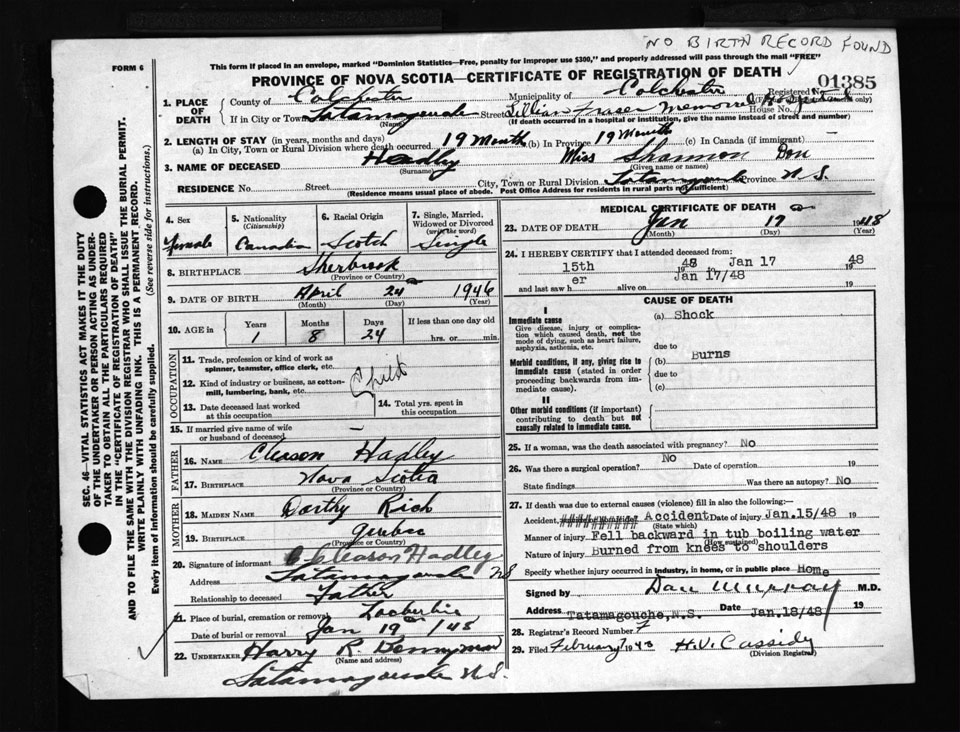 NO BIRTH RECORD FOUND
FORM 6
This form if placed in an envelope, marked "Dominion Statistics—Free, penalty for improper use $300," and properly addressed will pass through the mail "FREE"
PROVINCE OF NOVA SCOTIA—CERTIFICATE OF REGISTRATION OF DEATH
Registered No. 01385
1. PLACE OF DEATH
County of Colchester Municipality of Colchester
If in City or Town Tatamagouche (Name) Street Lillian Fraser Memorial Hospital House No.
(If death occurred in a hospital or institution, give the name instead of street and number)
2. LENGTH OF STAY (in years, months and days)
(a) In City, Town or Rural Division where death occurred 19 Month (b) In Province 19 Month (c) In Canada (if immigrant) —
3. NAME OF DECEASED Hadley Miss Shannon Don
(Surname) (Given name or names)
RESIDENCE No. Street City, Town or Rural Division Tatamagouche Province N.S.
(Residence means usual place of abode. Post Office Address for residents in rural parts not sufficient)
4. Sex 5. Nationality (Citizenship) 6. Racial Origin 7. Single, Married, Widowed or Divorced (write the word)
Female Canadian Scotch Single
8. BIRTHPLACE Sherbrook
(Province or Country)
9. DATE OF BIRTH April 24th 1946
(Month) (Day) (Year)
10. AGE in Years Months Days If less than one day old
1 8 24 hrs. or min.
OCCUPATION
11. Trade, profession or kind of work as spinner, teamster, office clerk, etc.
12. Kind of industry or business, as cotton-mill, lumbering, bank, etc.
Child
13. Date deceased last worked at this occupation
14. Total yrs. spent in this occupation
15. If married give name of wife or husband of deceased —
FATHER
16. NAME Cleason Hadley
17. BIRTHPLACE Nova Scotia
(Province or Country)
MOTHER
18. MAIDEN NAME Dorthy Rich
19. BIRTHPLACE Quebec
(Province or Country)
20. Signature of informant C Cleason Hadley
Address Tatamagouche NS
Relationship to deceased Father
21. Place of burial, cremation or removal
Date of burial or removal Jan 19th /48
22. UNDERTAKER Harry R.
(Name and address)
Tatamagouche N.S.
MEDICAL CERTIFICATE OF DEATH
23. DATE OF DEATH Jan 17 1948
(Month) (Day) (Year)
24. I HEREBY CERTIFY that I attended deceased from
15th 1948 Jan 17 1948
and last saw her alive on Jan 17/48 19
CAUSE OF DEATH
I
Immediate cause
Give disease, injury or complication which caused death, not the mode of dying, such as heart failure, asphyxia, asthenia, etc.
(a) Shock
due to
Morbid conditions, if any, giving rise to immediate cause (stated in order proceeding backwards from immediate cause).
(b) Burns
due to
(c)
II
Other morbid conditions (if important) contributing to death but not causally related to immediate cause.
25. If a woman, was the death associated with pregnancy? No
26. Was there a surgical operation? No Date of operation 19
State findings Was there an autopsy? No
27. If death was due to external causes (violence) fill in also the following:—
Accident, Accident Date of injury Jan.15/48 19
(State which)
Manner of injury Fell backward in tub boiling water
(How sustained)
Nature of injury Burned from knees to shoulders
Specify whether injury occurred in industry, in home, or in public place Home
Signed by Dan Murray M.D.
Address Tatamagouche,N.S. Date Jan.18/48 19
28. Registrar's Record Number 7
29. Filed February 7 1948 H.V. Cassidy
(Division Registrar)
SEC. 46—VITAL STATISTICS ACT MAKES IT THE DUTY
OF THE UNDERTAKER OR PERSON ACTING AS UNDER-
TAKER TO OBTAIN ALL THE PARTICULARS REQUIRED
IN THE "CERTIFICATE OF REGISTRATION OF DEATH"
AND TO FILE THE SAME WITH THE DIVISION REGISTRAR WHO SHALL ISSUE THE BURIAL PERMIT.
WRITE PLAINLY WITH UNFADING INK. THIS IS A PERMANENT RECORD.
Every item of Information should be carefully supplied. (See reverse side for instructions.)